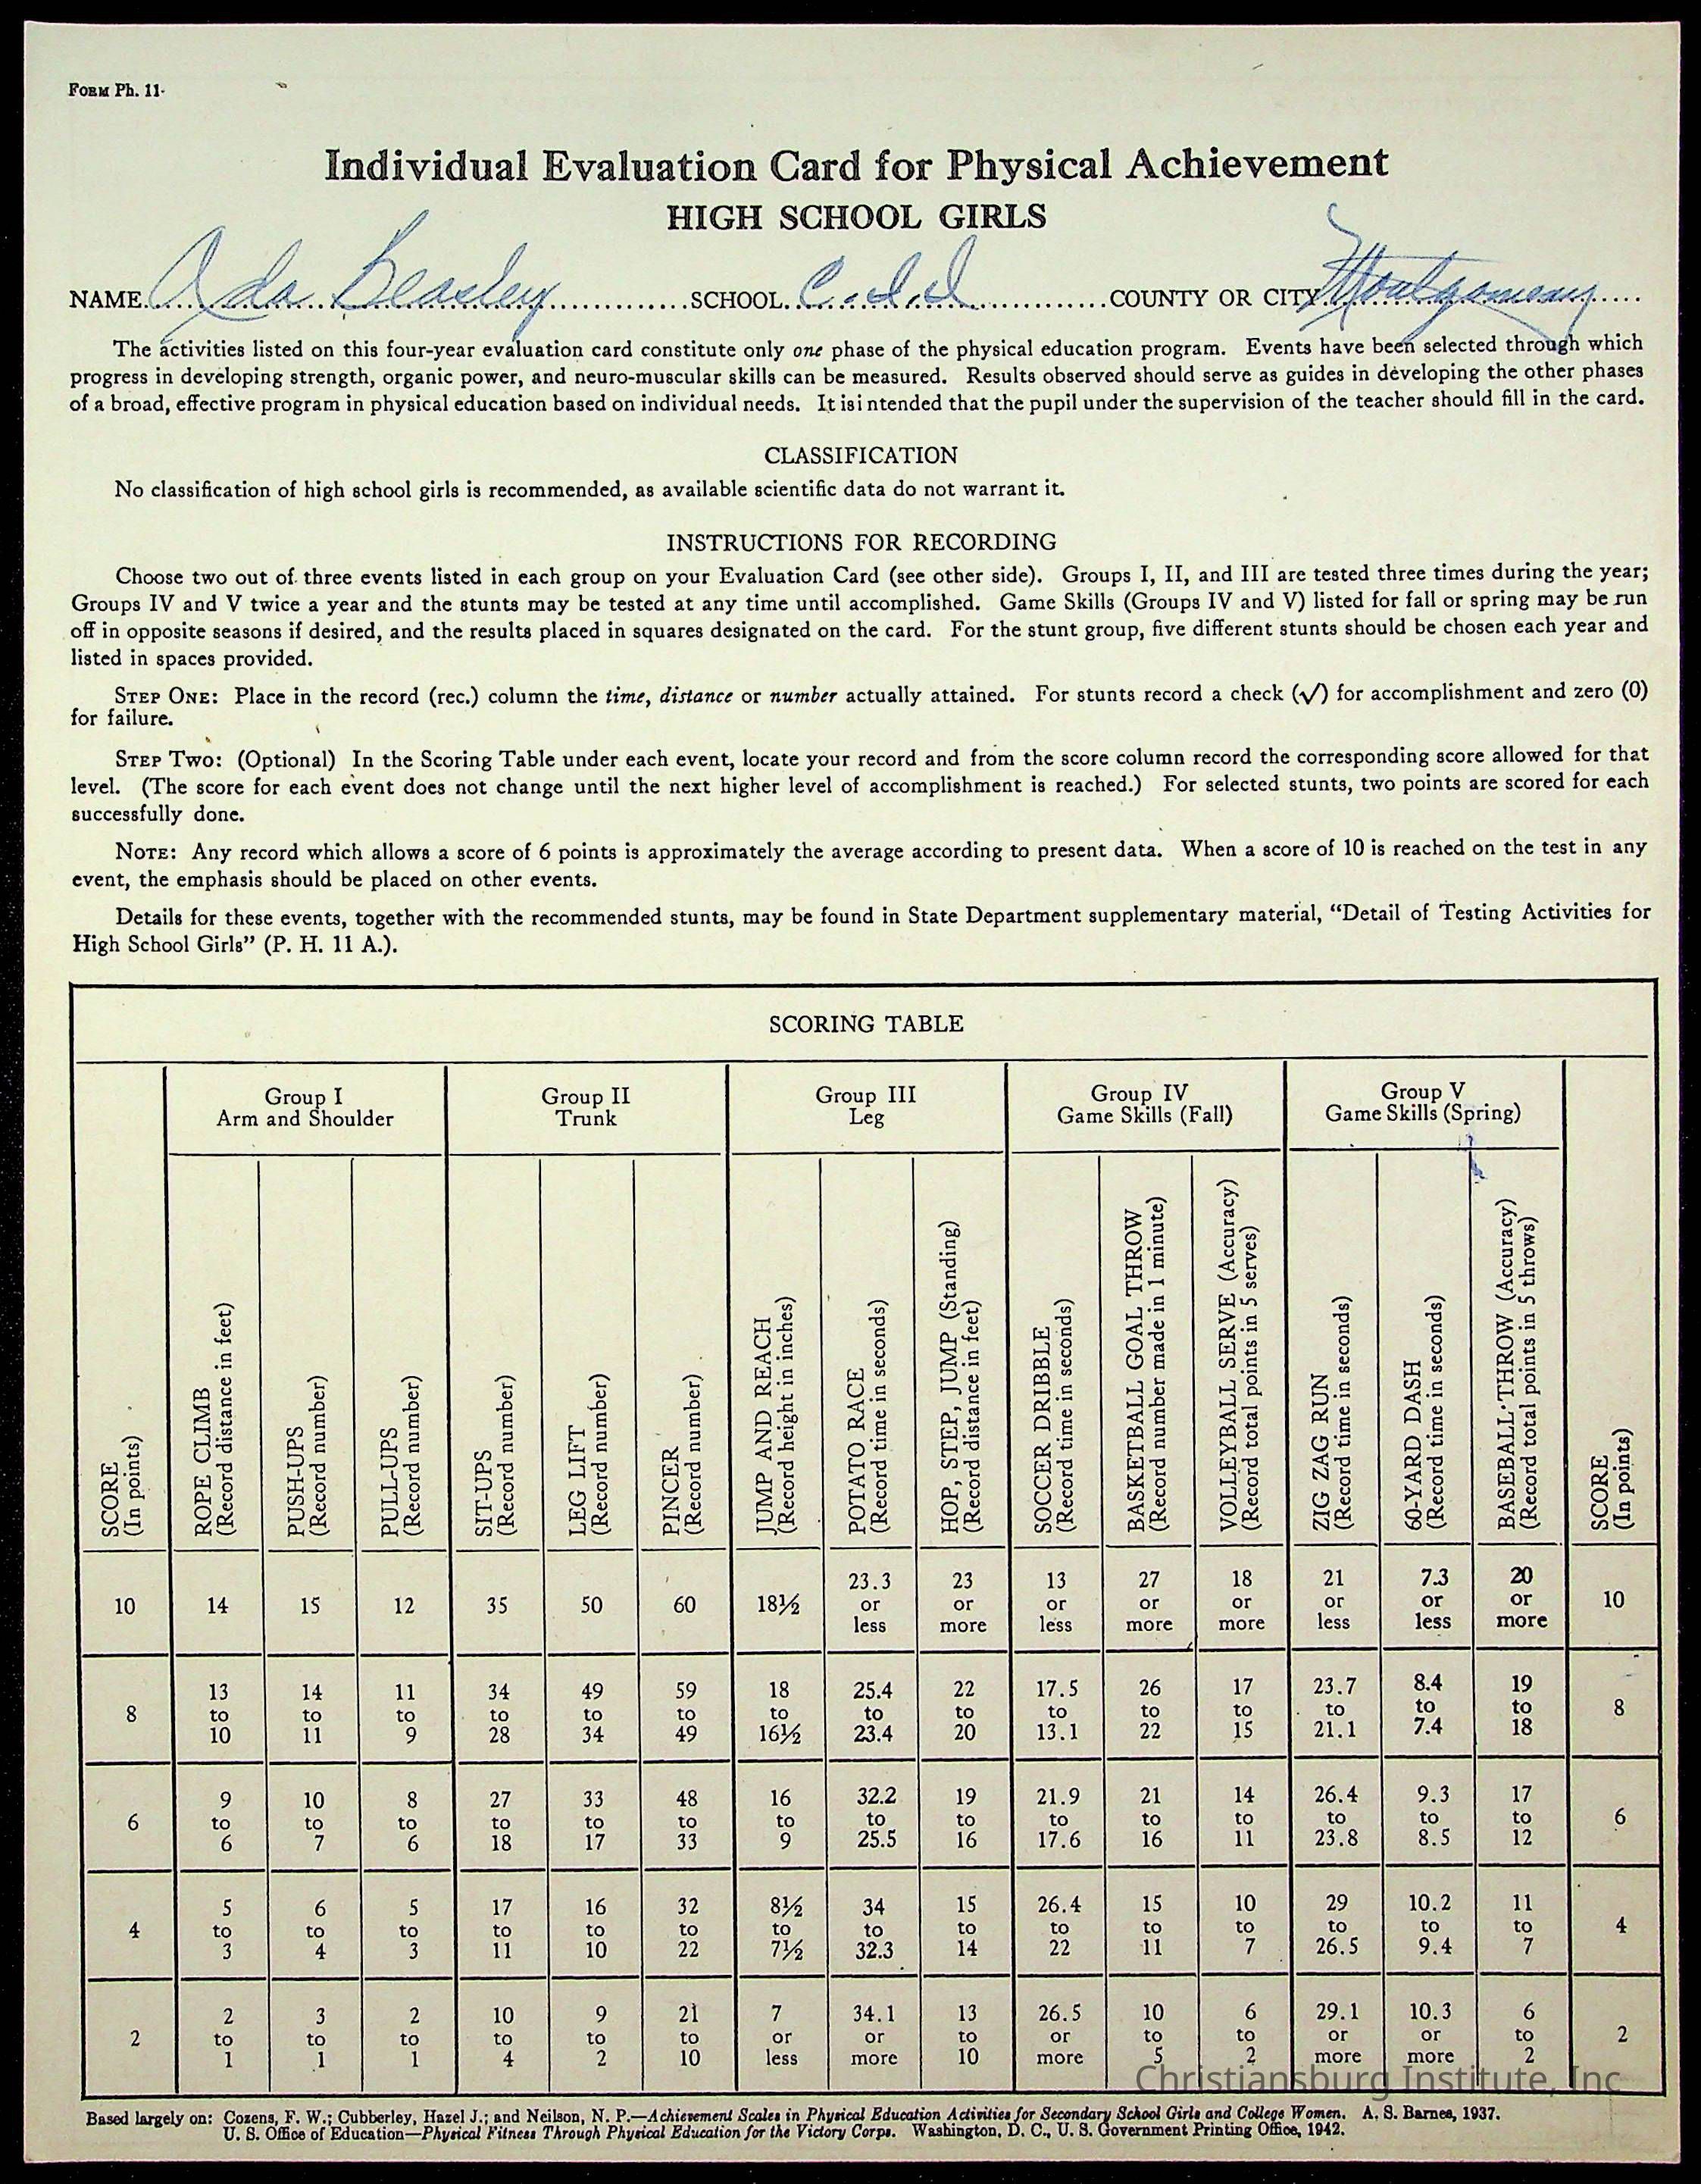 FORM Ph. 11·
Individual Evaluation Card for Physical Achievement
HIGH SCHOOL GIRLS
NAME Ada Beasley SCHOOL C.I.I COUNTY OR CITY Montgomery
The activities listed on this four-year evaluation card constitute only one phase of the physical education program. Events have been selected through which
progress in developing strength, organic power, and neuro-muscular skills can be measured. Results observed should serve as guides in developing the other phases
of a broad, effective program in physical education based on individual needs. It isi ntended that the pupil under the supervision of the teacher should fill in the card.
CLASSIFICATION
No classification of high school girls is recommended, as available scientific data do not warrant it.
INSTRUCTIONS FOR RECORDING
Choose two out of three events listed in each group on your Evaluation Card (see other side). Groups I, II, and III are tested three times during the year;
Groups IV and V twice a year and the stunts may be tested at any time until accomplished. Game Skills (Groups IV and V) listed for fall or spring may be run
off in opposite seasons if desired, and the results placed in squares designated on the card. For the stunt group, five different stunts should be chosen each year and
listed in spaces provided.
STEP ONE: Place in the record (rec.) column the time, distance or number actually attained. For stunts record a check (√) for accomplishment and zero (0)
for failure.
STEP TWO: (Optional) In the Scoring Table under each event, locate your record and from the score column record the corresponding score allowed for that
level. (The score for each event does not change until the next higher level of accomplishment is reached.) For selected stunts, two points are scored for each
successfully done.
NOTE: Any record which allows a score of 6 points is approximately the average according to present data. When a score of 10 is reached on the test in any
event, the emphasis should be placed on other events.
Details for these events, together with the recommended stunts, may be found in State Department supplementary material, “Detail of Testing Activities for
High School Girls” (P. H. 11 A.).
SCORING TABLE
Group I Group II Group III Group IV Group V
Arm and Shoulder Trunk Leg Game Skills (Fall) Game Skills (Spring)
SCORE
(In points)
ROPE CLIMB
(Record distance in feet)
PUSH-UPS
(Record number)
PULL-UPS
(Record number)
SIT-UPS
(Record number)
LEG LIFT
(Record number)
PINCER
(Record number)
JUMP AND REACH
(Record height in inches)
POTATO RACE
(Record time in seconds)
HOP, STEP, JUMP (Standing)
(Record distance in feet)
SOCCER DRIBBLE
(Record time in seconds)
BASKETBALL GOAL THROW
(Record number made in 1 minute)
VOLLEYBALL SERVE (Accuracy)
(Record total points in 5 serves)
ZIG ZAG RUN
(Record time in seconds)
60-YARD DASH
(Record time in seconds)
BASEBALL THROW (Accuracy)
(Record total points in 5 throws)
SCORE
(In points)
23.3 23 13 27 18 21 7.3 20
10 14 15 12 35 50 60 18½ or or or or or or or or 10
less more less more more less less more
13 14 11 34 49 59 18 25.4 22 17.5 26 17 23.7 8.4 19
8 to to to to to to to to to to to to to to to 8
10 11 9 28 34 49 16½ 23.4 20 13.1 22 15 21.1 7.4 18
9 10 8 27 33 48 16 32.2 19 21.9 21 14 26.4 9.3 17
6 to to to to to to to to to to to to to to to 6
6 7 6 18 17 33 9 25.5 16 17.6 16 11 23.8 8.5 12
5 6 5 17 16 32 8½ 34 15 26.4 15 10 29 10.2 11
4 to to to to to to to to to to to to to to to 4
3 4 3 11 10 22 7½ 32.3 14 22 11 7 26.5 9.4 7
2 3 2 10 9 21 7 34.1 13 26.5 10 6 29.1 10.3 6
2 to to to to to to or or to or to to or or to 2
1 1 1 4 2 10 less more 10 more 5 2 more more 2
Christiansburg Institute, Inc
Based largely on: Cozens, F. W.; Cubberley, Hazel J.; and Neilson, N. P.—Achievement Scales in Physical Education Activities for Secondary School Girls and College Women. A. S. Barnes, 1937.
U. S. Office of Education—Physical Fitness Through Physical Education for the Victory Corps. Washington, D. C., U. S. Government Printing Office, 1942.